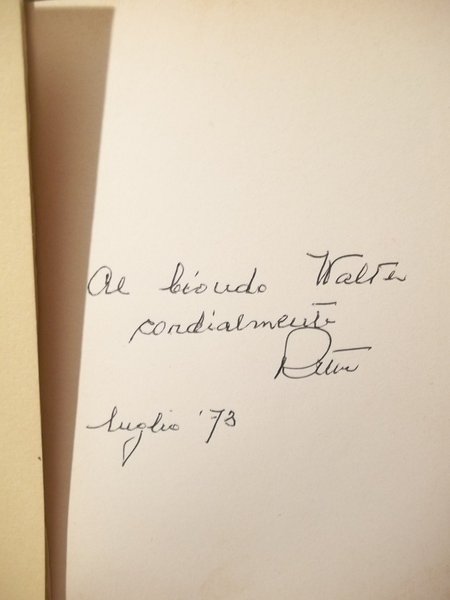 Al biondo Walter
cordialmente
luglio '73